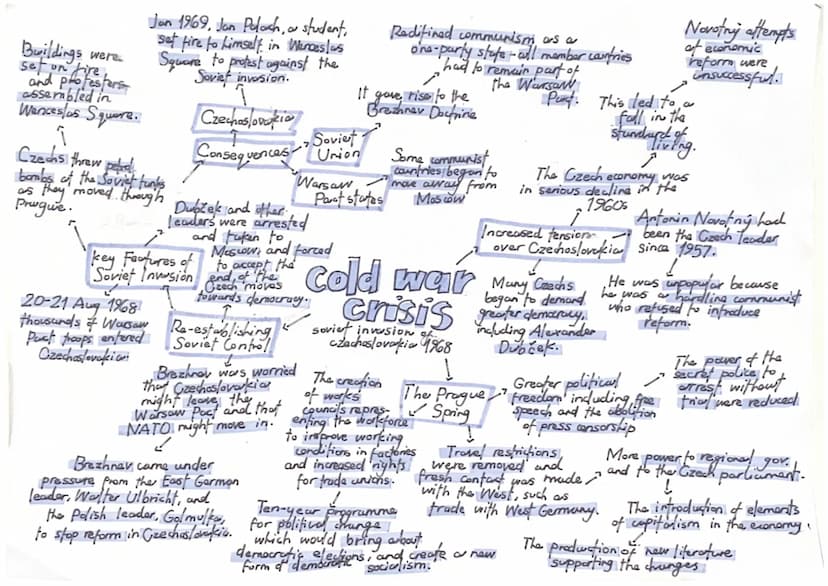 cold war
crisis
soviet invasion of
czechoslovakia 1968
Increased tension
over Czechoslovakia
The Czech economy was
in serious decline in the
1960s
This led to a
fall in the
standard of
living.
Novotný attempts
at economic
reform were
unsuccessful.
Antonin Novotný had
been the Czech leader
since 1957.
He was unpopular because
he was a hardline communist
who refused to introduce
reform.
Many Czechs
began to demand
greater democracy,
including Alexander
Dubček.
The Prague
Spring
Greater political
freedom including free
speech and the abolition
of press censorship
The power of the
secret police to
arrest without
trial were reduced
Travel restrictions
were removed and
fresh contact was made
with the West, such as
trade with West Germany.
More power to regional gov.
and to the Czech parliament.
The introduction of elements
of capitalism in the economy.
The production of new literature
supporting the changes
The creation
of works
councils repres-
enting the workforce
to improve working
conditions in factories
and increased rights
for trade unions.
Ten-year programme
for political change
which would bring about
democratic elections, and create a new
form of democratic socialism.
Re-establishing
Soviet Control
Brezhnev was worried
that Czechoslovakia
might leave the
Warsaw Pact and that
NATO might move in.
Brezhnev came under
pressure from the East German
leader, Walter Ulbricht, and
the Polish leader, Golmulka,
to stop reform in Czechoslovakia.
key Features of
Soviet Invasion
20-21 Aug 1968
thousands of Warsaw
Pact troops entered
Czechoslovakia
Czechs threw petrol
bombs at the Soviet tanks
as they moved through
Prague.
Buildings were
set on fire
and protesters
assembled in
Wenceslas Square.
Dubček and other
leaders were arrested
and taken to
Moscow, and forced
to accept the
end of the
Czech moves
towards democracy.
Consequences
Czechoslovakia
Jan 1969, Jan Palach, a student,
set fire to himself in Wenceslas
Square to protest against the
Soviet invasion.
Soviet
Union
It gave rise to the
Brezhnev Doctrine
Redifined communism as a
one-party state - all member countries
had to remain part of
the Warsaw
Pact.
Warsaw
Pact states
Some communist
countries began to
move away from
Moscow